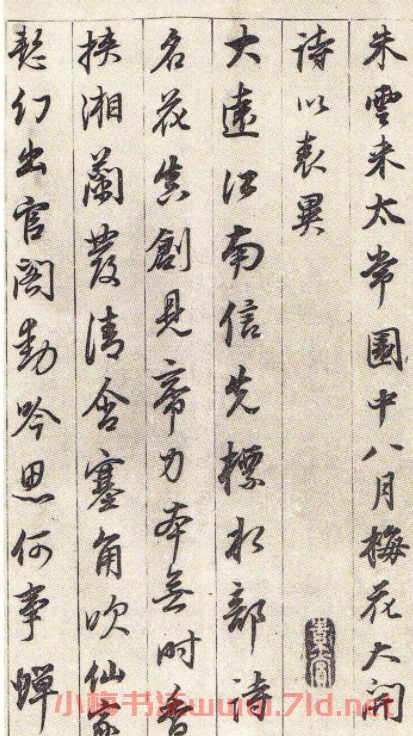 朱雲来太常園中八月梅花大開
詩以表異
大遠江南信先標水部詩
名花真創見帝力本無時香
挾湘蘭發清含塞角吹仙家
愁幻出官閣動吟思何事蟬
小梅书法www.7ld.net